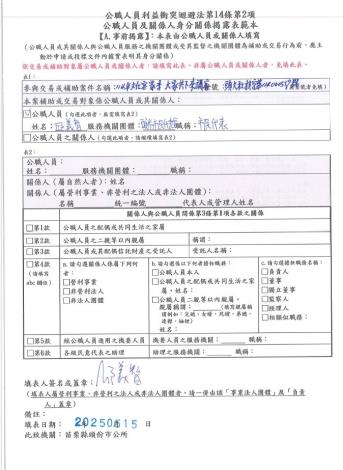 公職人員利益衝突迴避法第14條第2項
公職人員及關係人身分關係揭露表範本
【A.事前揭露】:本表由公職人員或關係人填寫
(公職人員或其關係人與公職人員服務之機關團體或受其監督之機關團體為補助或交易行為前,應主動於申請或投標文件內據實表明其身分關係)
※交易或補助對象屬公職人員或關係人者,請填寫此表。非屬公職人員或關係人者,免填此表。
表1:
參與交易或補助案件名稱: 案號:
本案補助或交易對象係公職人員或其關係人:
☑公職人員(勾選此項者,無需填寫表2)
姓名: 服務機關團體: 職稱:市民代表
□公職人員之關係人(勾選此項者,請繼續填寫表2)
表2:
公職人員:
姓名: 服務機關團體: 職稱:
關係人(屬自然人者):姓名
關係人(屬營利事業、非營利之法人或非法人團體):
名稱 統一編號 代表人或管理人姓名
關係人與公職人員間係第3條第1項各款之關係
□第1款 公職人員之配偶或共同生活之家屬
□第2款 公職人員之二親等以內親屬 稱謂:
□第3款 公職人員或其配偶信託財產之受託人 受託人名稱:
□第4款(請填寫abc欄位)
a.請勾選關係人係屬下列何者:
□營利事業
□非營利法人
□非法人團體
b.請勾選係以下何者擔任職務:
□公職人員本人
□公職人員之配偶或共同生活之家屬。姓名:
□公職人員二親等以內親屬。
親屬稱謂:
姓名:
c.請勾選擔任職務名稱:
□負責人
□董事
□獨立董事
□監察人
□經理人
□相類似職務:
□第5款 經公職人員進用之機要人員 機要人員之服務機關: 職稱:
□第6款 各級民意代表之助理 助理之服務機關: 職稱:
填表人簽名或蓋章:
(填表人屬營利事業、非營利之法人或非法人團體者,請一併由該「事業法人團體」及「負責人」蓋章)
備註:
填表日期:20250515
此致機關:苗栗縣頭份市公所